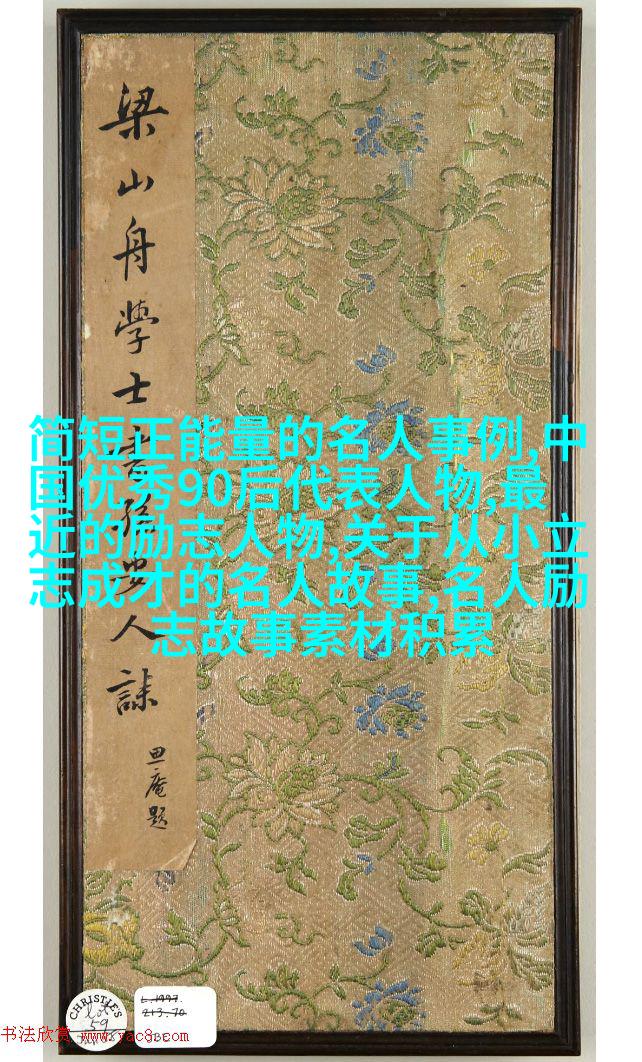 梁山舟學士書人誄
庵題
简短正能量的名人事例,中
国优秀90后代表人物,最
近的励志人物,关于从小立
志成才的名人故事,名人励
志故事素材积累
CHRISTIE'S
Lot
59
L.1997.
213.70
书法欣赏 www.yac8.com